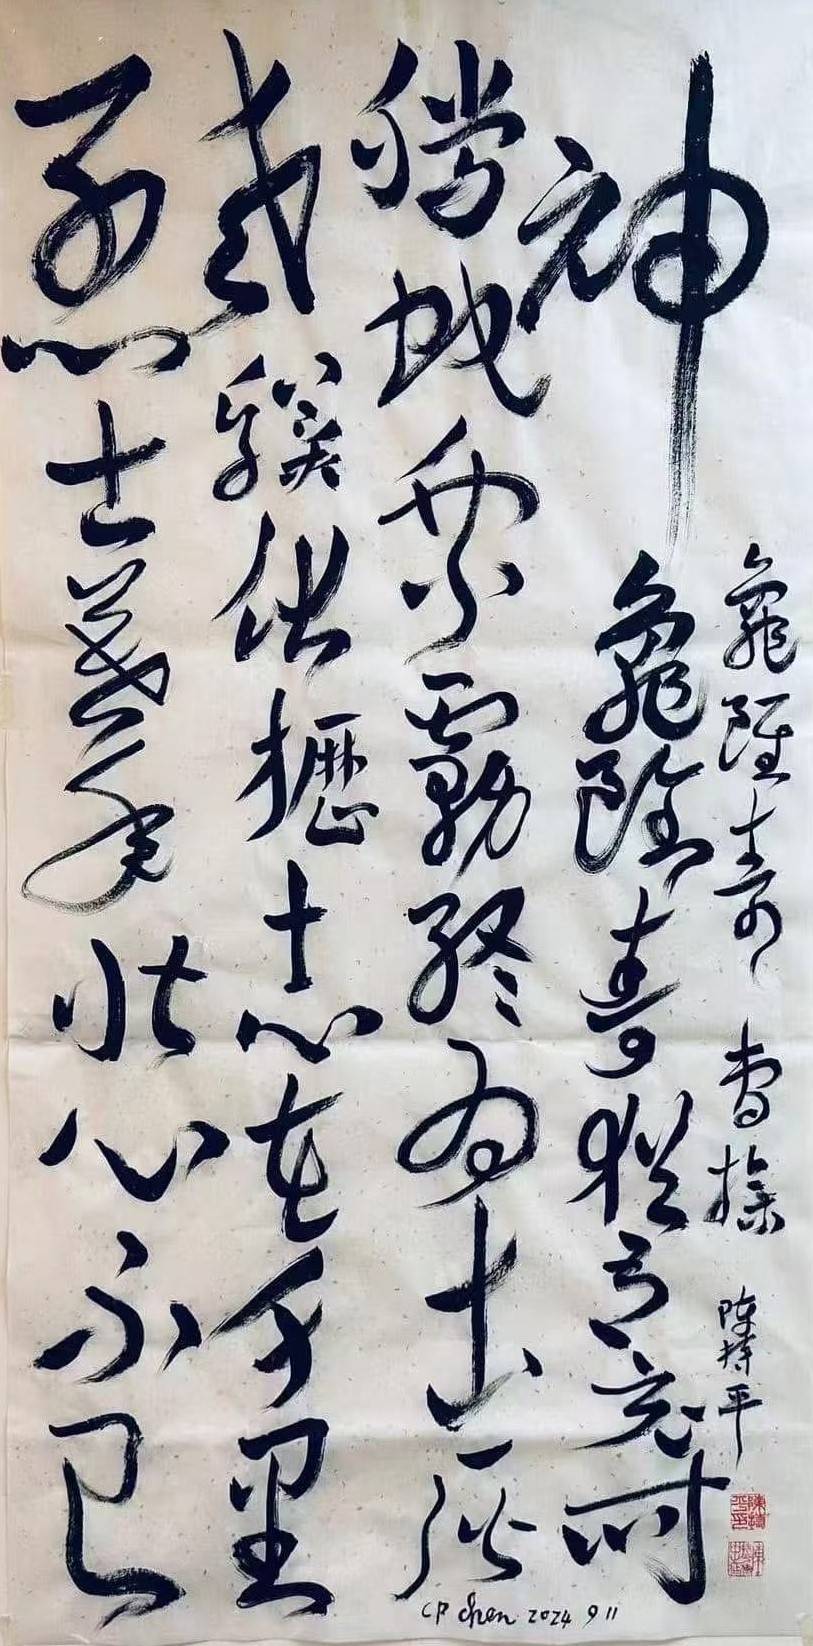 龜雖壽 曹操 陳平
神龜雖壽猶有竟時
騰蛇乘霧終為土灰
老驥伏櫪志在千里
烈士暮年壯心不已
CP Chen 2024 9 11